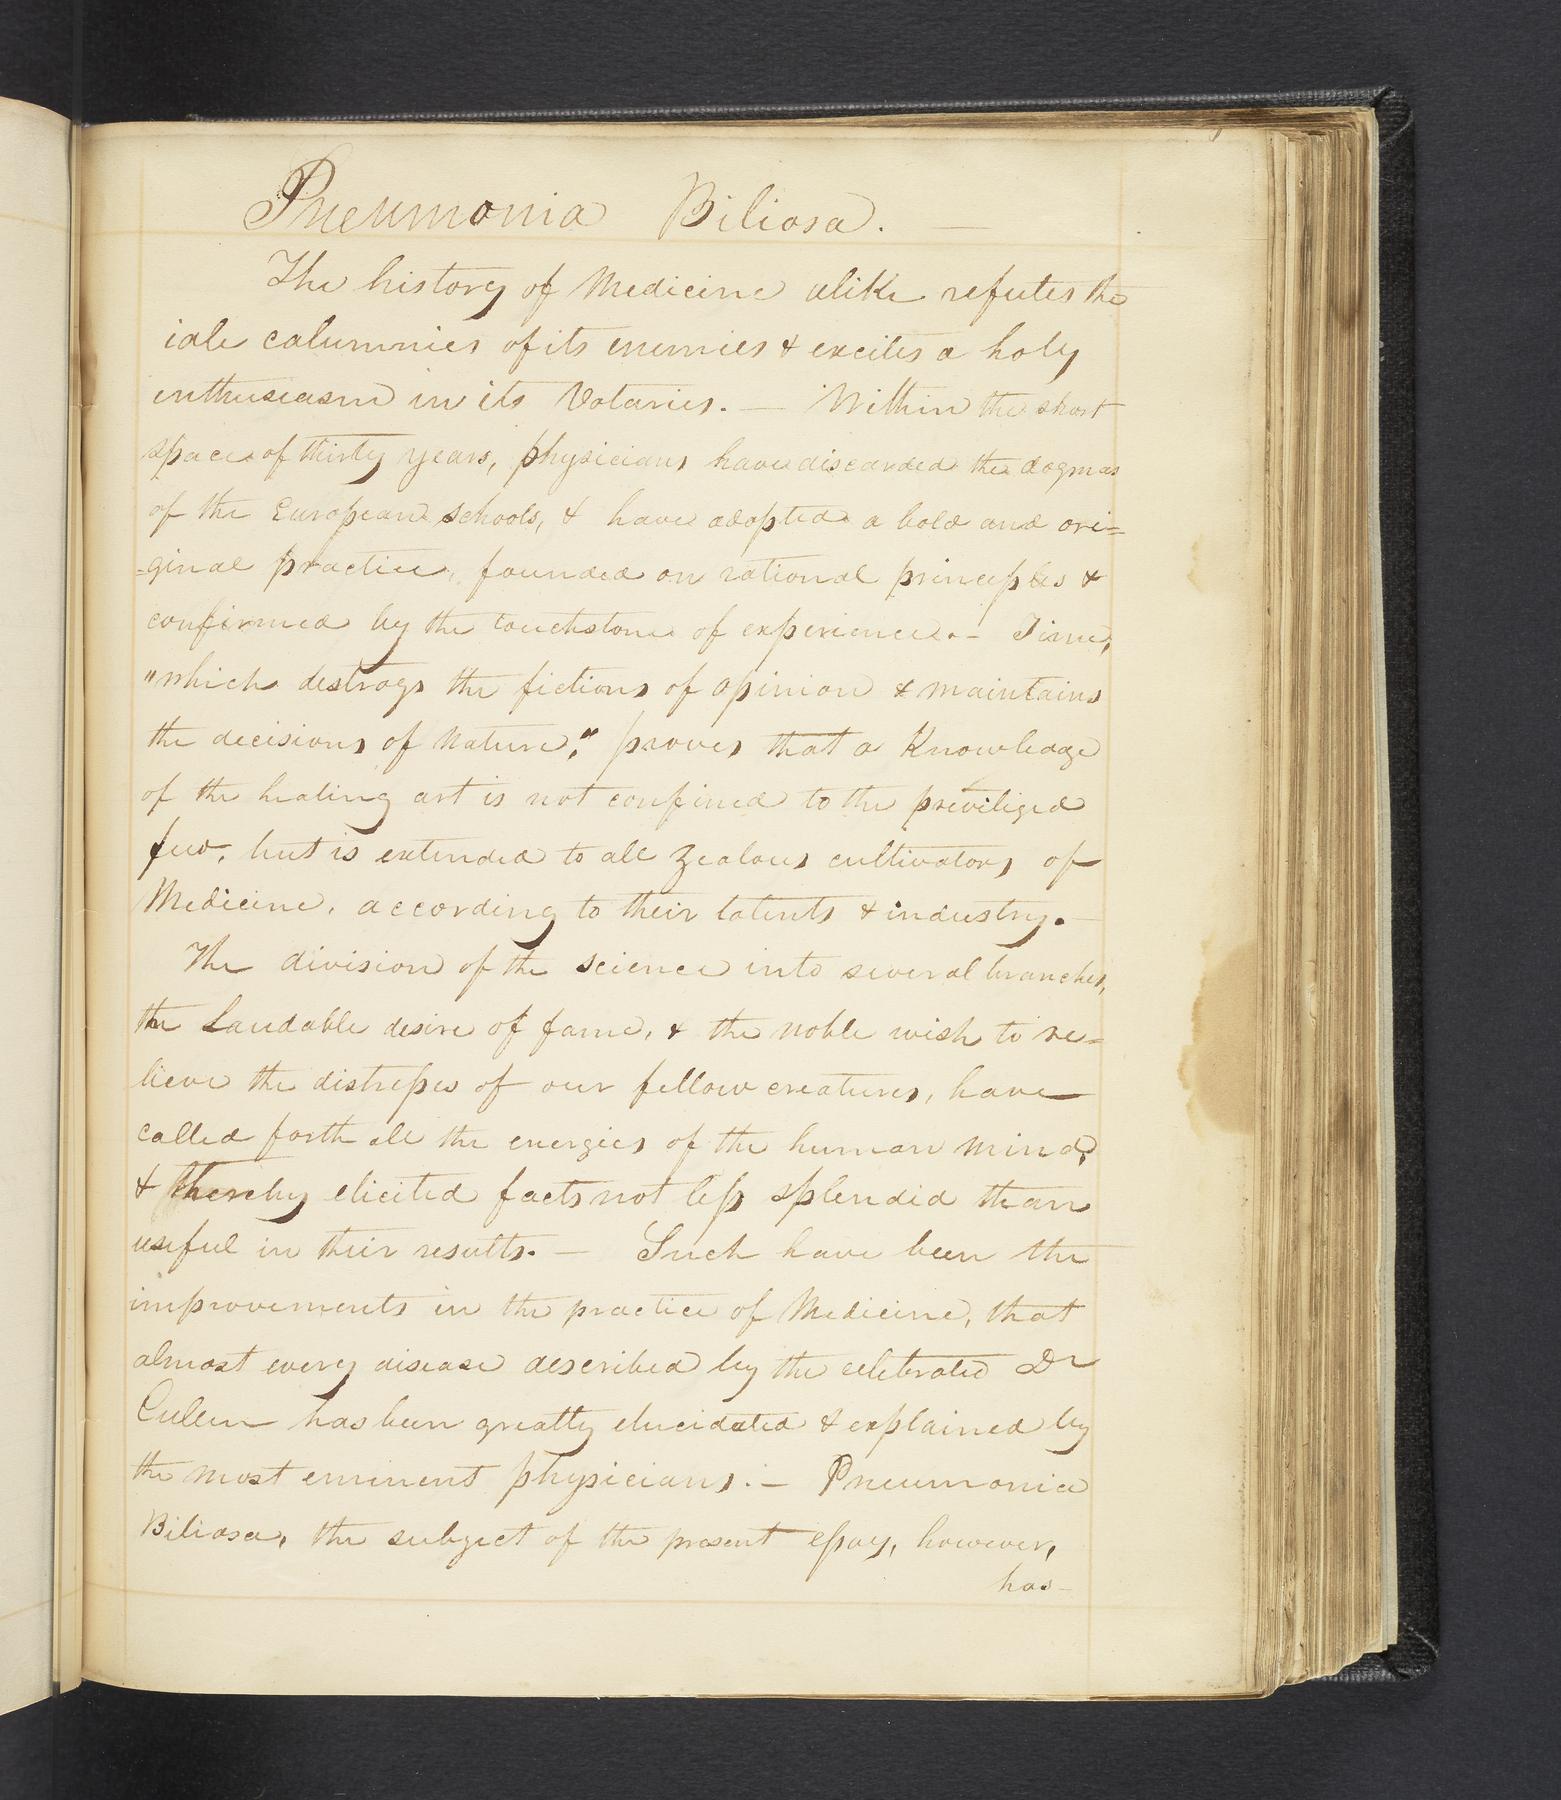 Pneumonia Biliosa. —
The history of Medicine alike refutes the
idle calumnies of its enemies & excites a holy
enthusiasm in its Votaries. — Within the short
space of thirty years, physicians have discarded the dogmas
of the European schools, & have adopted a bold and ori=
=ginal practice, founded on rational principles &
confirmed by the touchstone of experience. — Time,
"which destroys the fictions of opinion & maintains
the decisions of Nature," proves that a Knowledge
of the healing art is not confined to the previliged
few, but is extended to all zealous cultivators of
Medicine, according to their talents & industry. —
The division of the science into several branches,
the Laudable desire of fame, & the noble wish to re=
lieve the distresses of our fellow creatures, have
called forth all the energies of the human mind,
& thereby elicited facts not less splendid than
useful in their results. — Such have been the
improvements in the practice of Medicine, that
almost every disease described by the celebrated Dr
Cullen has been greatly elucidated & explained by
the most eminent physicians. — Pneumonia
Biliosa, the subject of the present essay, however,
has